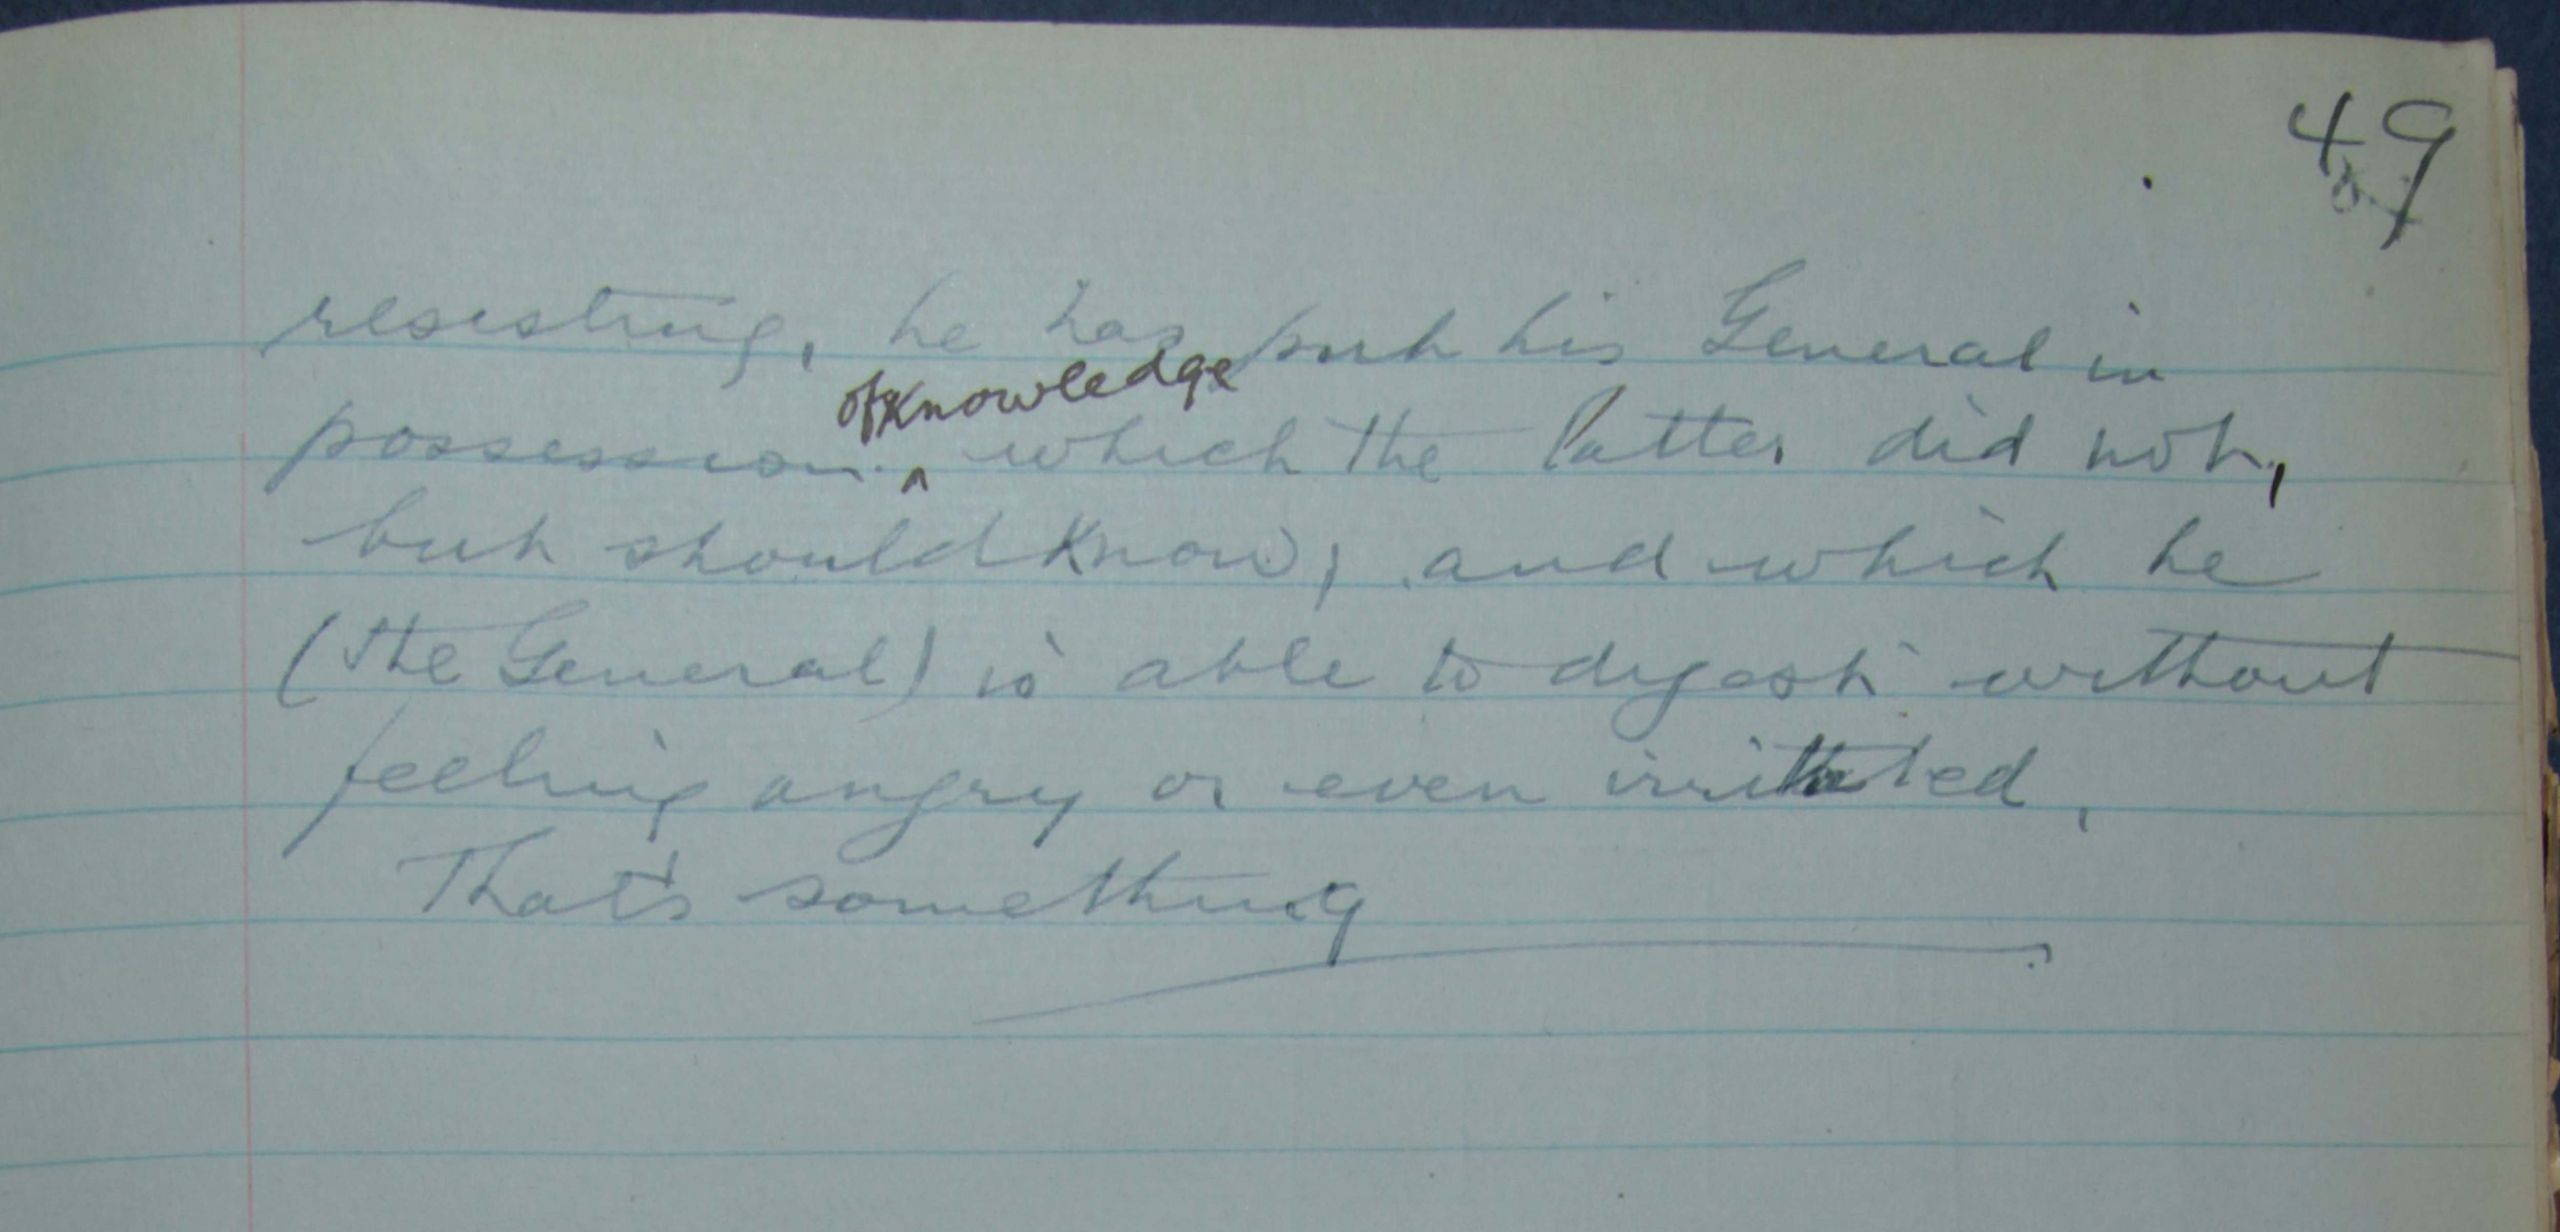 49
resisting, he has put his General in
possession of knowledge which the latter did not,
but should know; and which he
(the General) is able to digest without
feeling angry or even irritated,
That's something